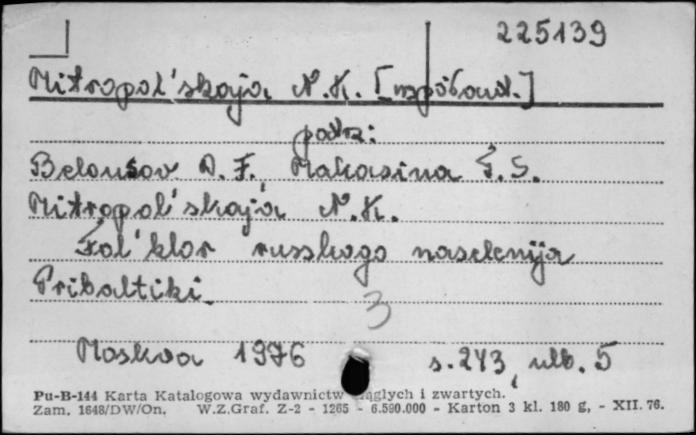 225139
Mitropol'skaja N.K. [współaut.]
patrz:
Belousov A.F., Makasina T.S.
Mitropol'skaja N.K.
Fol'klor russkogo naselenija
Pribaltiki.
3
Moskva 1976 s. 243, ulb. 5
Pu-B-144 Karta Katalogowa wydawnictw ciągłych i zwartych.
Zam. 1648/DW/On. W.Z.Graf. Z-2 - 1265 - 6.590.000 - Karton 3 kl. 180 g, - XII. 76.